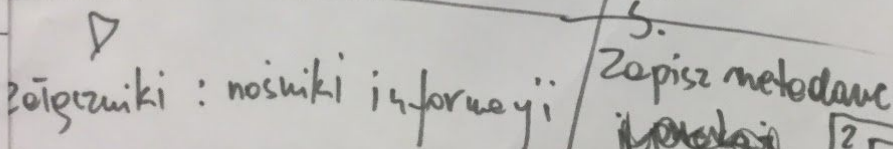 załączniki : nośniki informacji
5.
Zapisz metodanc
2